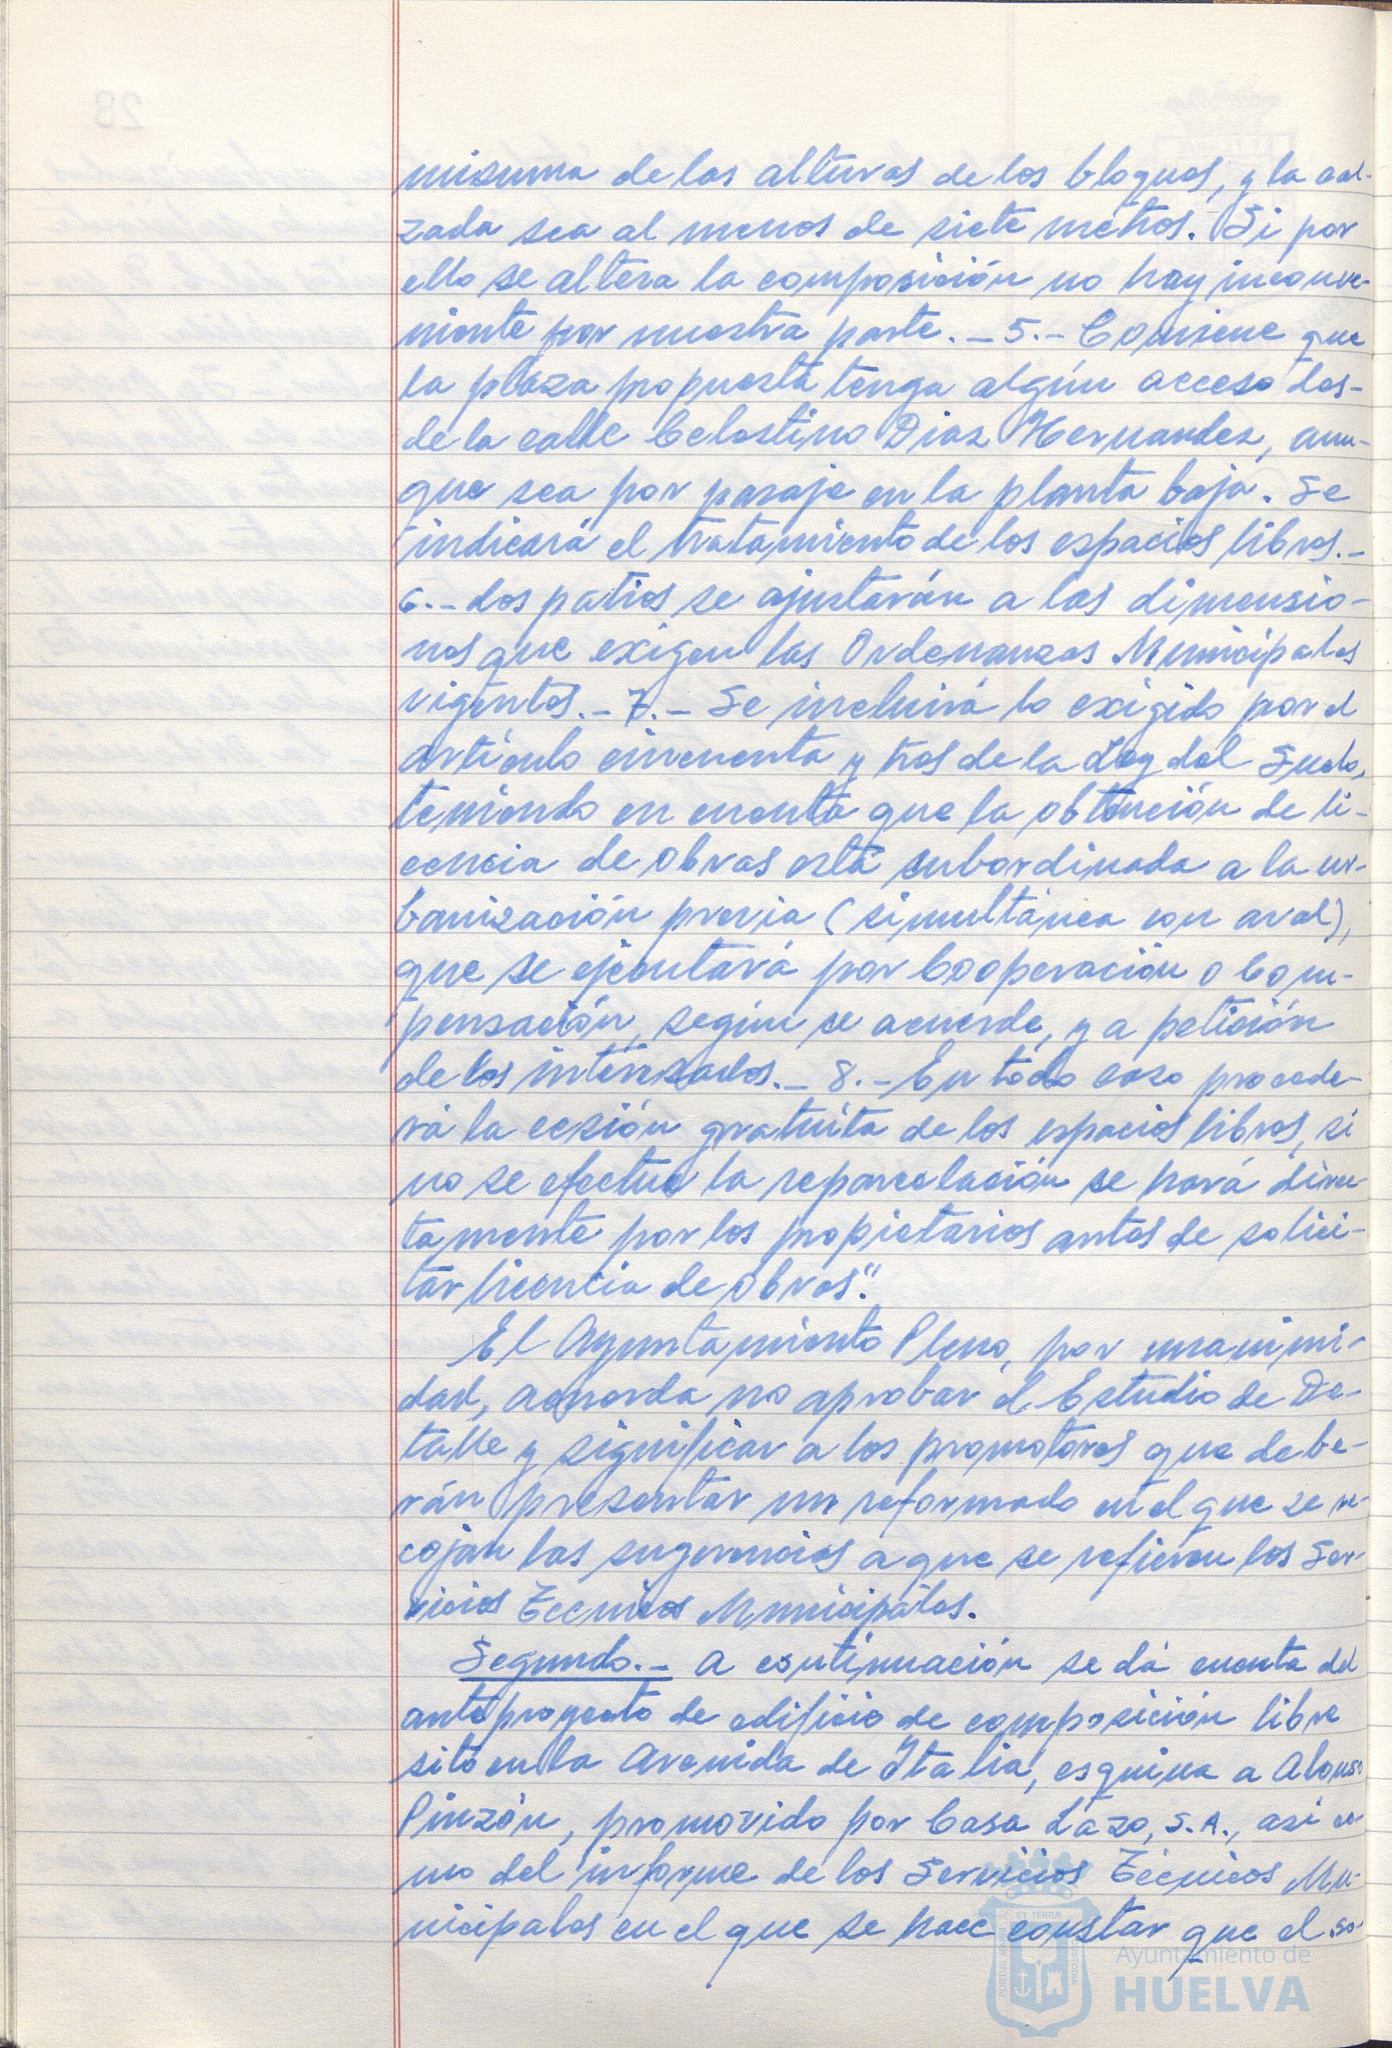 misma de las alturas de los bloques, y la cal-
zada sea al menos de siete metros. Si por
ello se altera la composición no hay inconve-
niente por nuestra parte. - 5.- Conviene que
la plaza propuesta tenga algún acceso des-
de la calle Celestino Diaz Hernandez, aun-
que sea por pasaje en la planta baja. Se
indicará el tratamiento de los espacios libres.-
6.- Los patios se ajustarán a las dimensio-
nes que exigen las Ordenanzas Municipales
vigentes. - 7.- Se incluirá lo exigido por el
artículo cincuenta y tres de la Ley del Suelo,
teniendo en cuenta que la obtención de li-
cencia de obras está subordinada a la ur-
banización previa (simultánea con aval),
que se ejecutará por Cooperación o Com-
pensación, según se acuerde, y a petición
de los interesados. - 8.- En todo caso procede-
rá la cesión gratuita de los espacios libres, si
no se efectue la reparcelación se hará direc-
tamente por los propietarios antes de solici-
tar licencia de obras".
El Ayuntamiento Pleno, por unanimi-
dad, acuerda no aprobar el Estudio de De-
talle y significar a los promotores que debe-
rán presentar un reformado en el que se re-
cojan las sugerencias a que se refieren los Ser-
vicios Técnicos Municipales.
Segundo.- A continuación se dá cuenta del
anteproyecto de edificio de composición libre
sito en la Avenida de Italia, esquina a Alonso
Pinzón, promovido por Casa Lazo, S.A., asi co-
mo del informe de los Servicios Técnicos Mu-
nicipales en el que se hace constar que el so-
Ayuntamiento de
HUELVA